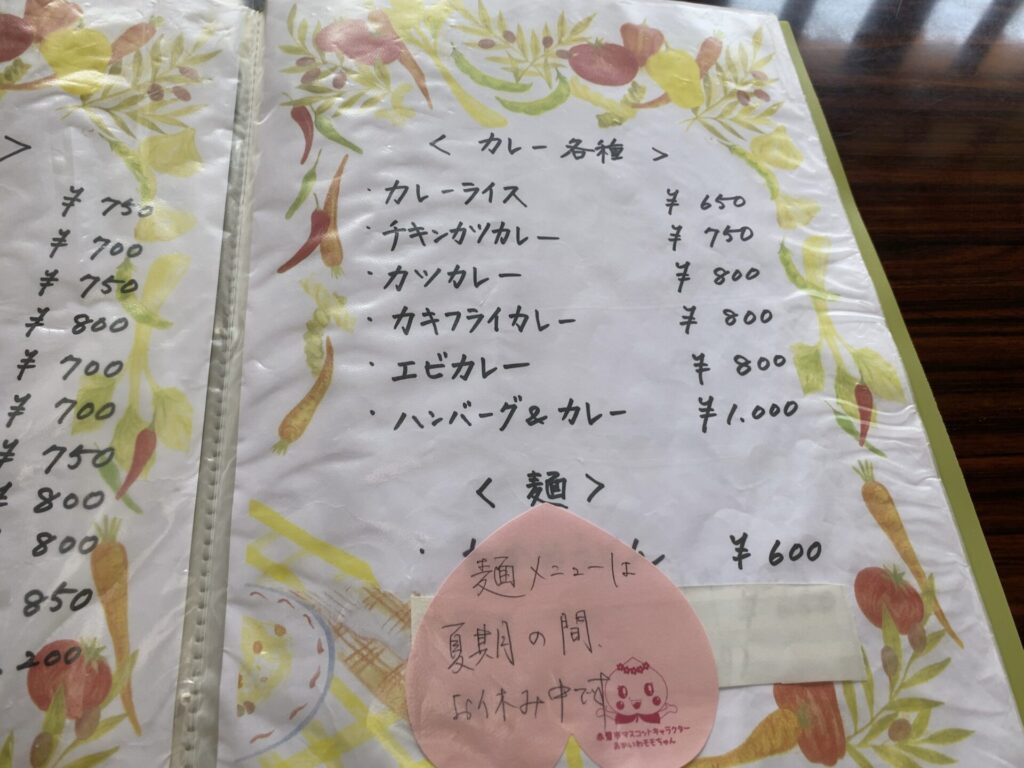 >
¥ 750
¥ 700
¥ 750
¥ 800
¥ 700
¥ 700
¥ 750
800
800
850
200
< カレー各種 >
・カレーライス ¥ 650
・チキンカツカレー ¥ 750
・カツカレー ¥ 800
・カキフライカレー ¥ 800
・エビカレー ¥ 800
・ハンバーグ&カレー ¥1.000
< 麺 >
・ ¥ 600
麺メニューは
夏期の間、
お休み中です
赤磐市マスコットキャラクター
あかいわももちゃん